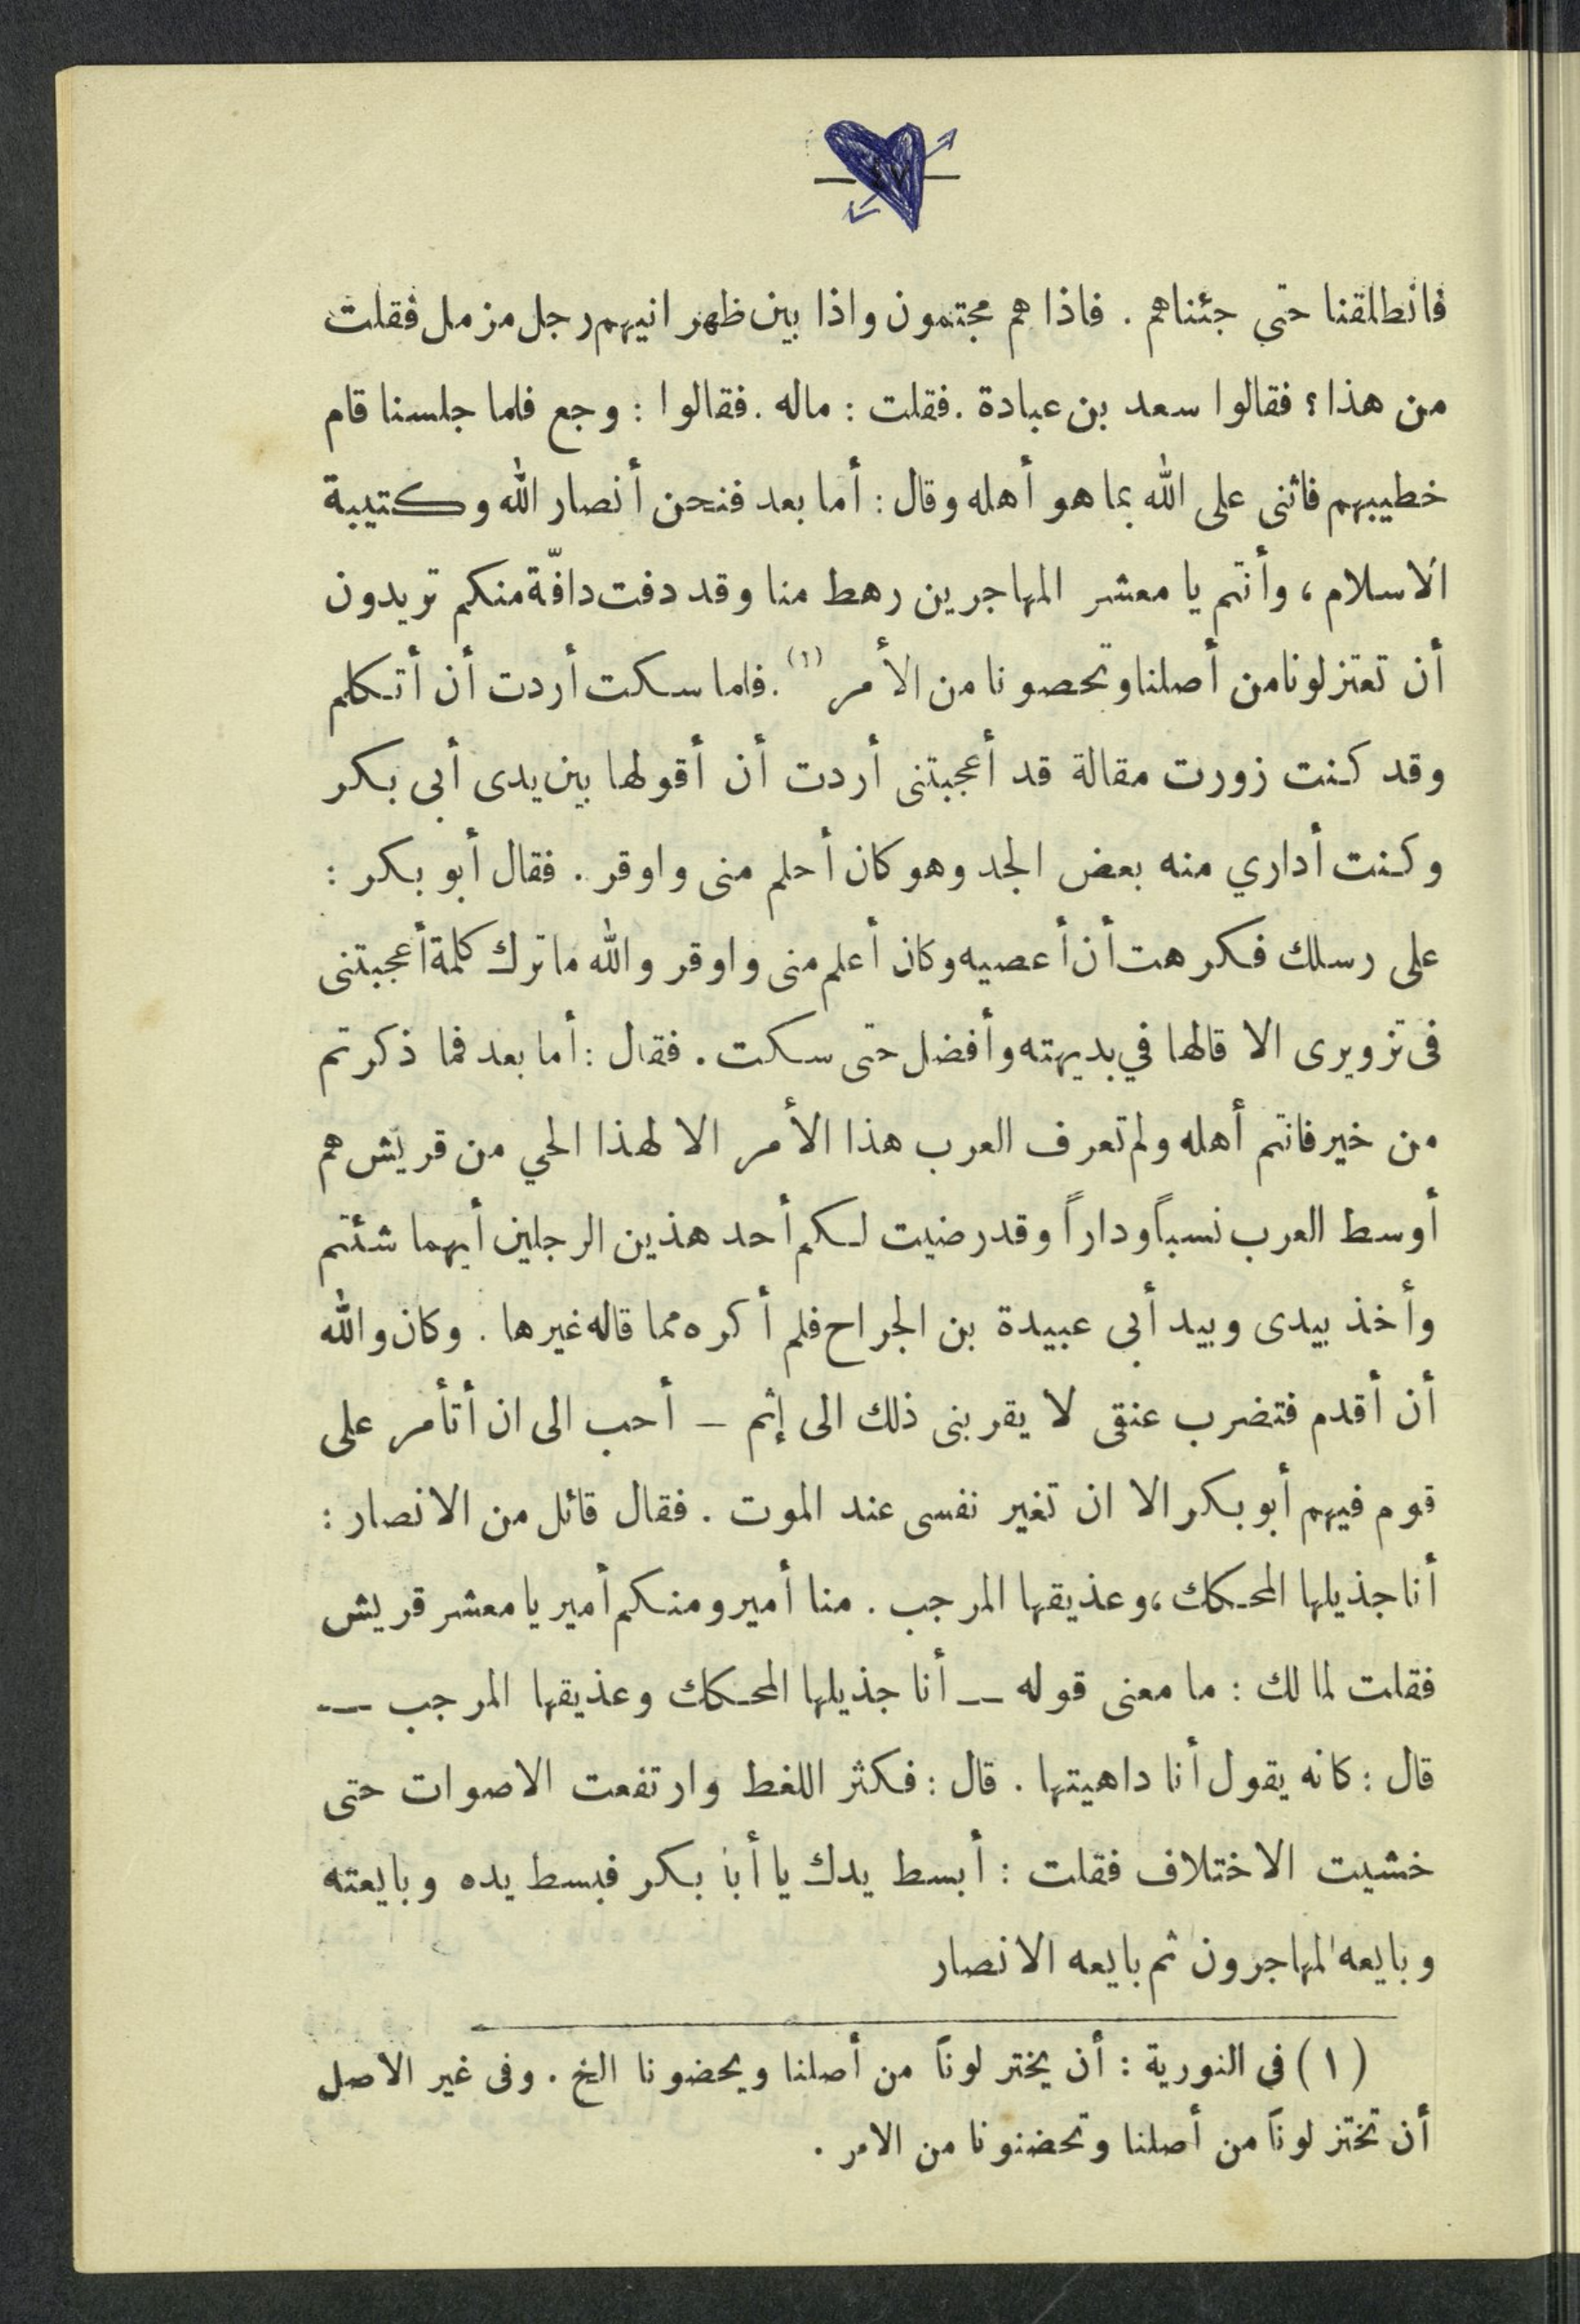 فانطلقنا حتى جئناهم . فاذا هم مجتمعون واذا بين ظهر انيهم رجل مزمل فقلت
من هذا ؟ فقالوا سعد بن عبادة . فقلت : ماله . فقالوا : وجع فلما جلسنا قام
خطيبهم فاثنى على الله بما هو أهله وقال : أما بعد فنحن أنصار الله وكتيبة
الاسلام ، وأنتم يا معشر المهاجرين رهط منا وقد دفت دافّة منكم تريدون
أن تعتزلونا من أصلنا وتحصونا من الأمر (١) . فلما سكت أردت أن أتكلم
وقد كنت زورت مقالة قد أعجبتنى أردت أن أقولها بين يدى أبى بكر
وكنت أداري منه بعض الجد وهو كان أحلم منى واوقر . فقال أبو بكر :
على رسلك فكرهت أن أعصيه وكان أعلم منى واوقر والله ما ترك كلمة أعجبتنى
فى تزويرى الا قالها في بديهته وأفضل حتى سكت . فقال : أما بعد فما ذكرتم
من خير فانتم أهله ولم تعرف العرب هذا الأمر الا لهذا الحي من قريش هم
أوسط العرب نسباً وداراً وقد رضيت لكم أحد هذين الرجلين أيهما شئتم
وأخذ بيدى وبيد أبى عبيدة بن الجراح فلم أكره مما قاله غيرها . وكان والله
أن أقدم فتضرب عنقى لا يقربنى ذلك الى إثم – أحب الى ان أتأمر على
قوم فيهم أبو بكر الا ان تغير نفسى عند الموت . فقال قائل من الانصار :
أنا جذيلها المحكك ، وعذيقها المرجب . منا أمير ومنكم أمير يا معشر قريش
فقلت لمالك : ما معنى قوله — أنا جذيلها المحكك وعذيقها المرجب —
قال : كانه يقول أنا داهيتها . قال : فكثر اللغط وارتفعت الاصوات حتى
خشيت الاختلاف فقلت : أبسط يدك يا أبا بكر فبسط يده وبايعته
وبايعه المهاجرون ثم بايعه الانصار
(١) فى النورية : أن يختر لوناً من أصلنا ويحضونا الخ . وفى غير الاصل
أن تختز لوناً من أصلنا وتحضنونا من الامر .